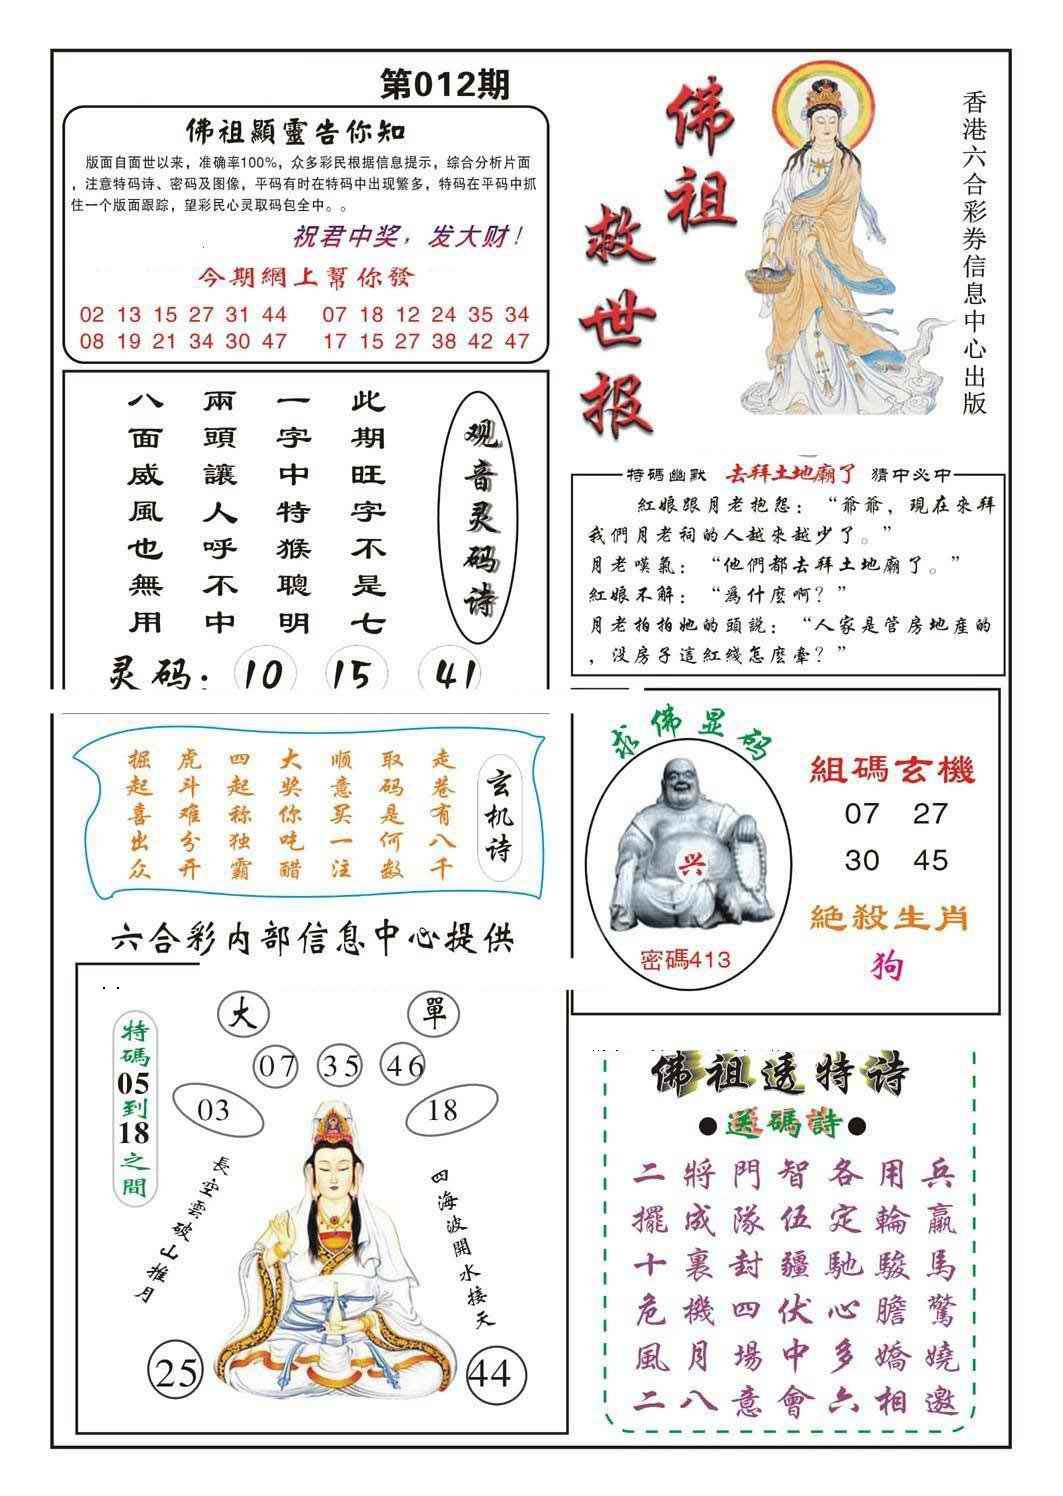 第012期
佛祖顯靈告你知
版面自面世以来，准确率100%，众多彩民根据信息提示，综合分析片面
，注意特码诗、密码及图像，平码有时在特码中出现繁多，特码在平码中抓
住一个版面跟踪，望彩民心灵取码包全中。。
祝君中奖，发大财！
今期網上幫你發
02 13 15 27 31 44 07 18 12 24 35 34
08 19 21 34 30 47 17 15 27 38 42 47
佛祖
救世报
香港六合彩券信息中心出版
观音灵码诗
此期旺字不是七
一字中特猴聰明
兩頭讓人呼不中
八面威風也無用
灵码：10 15 41
特碼幽默 去拜土地廟了 猜中必中
紅娘跟月老抱怨：“爺爺，現在來拜
我們月老祠的人越來越少了。”
月老嘆氣：“他們都去拜土地廟了。”
紅娘不解：“爲什麽啊？”
月老拍拍她的頭説：“人家是管房地産的
，没房子這紅綫怎麽牽？”
玄机诗
走巷有八千
取码是何数
顺意买一注
大奖你吃醋
四起称独霸
虎斗难分开
掘起喜出众
六合彩内部信息中心提供
求佛显码
兴
密碼413
組碼玄機
07 27
30 45
絕殺生肖
狗
特碼05到18之間
大 單
07 35 46
03 18
長空雲破山推月
四海波開水接天
25 44
佛祖透特诗
●送碼詩●
二將門智各用兵
擺成隊伍定輪贏
十裏封疆馳駿馬
危機四伏心膽驚
風月場中多嬌嬈
二八意會六相邀